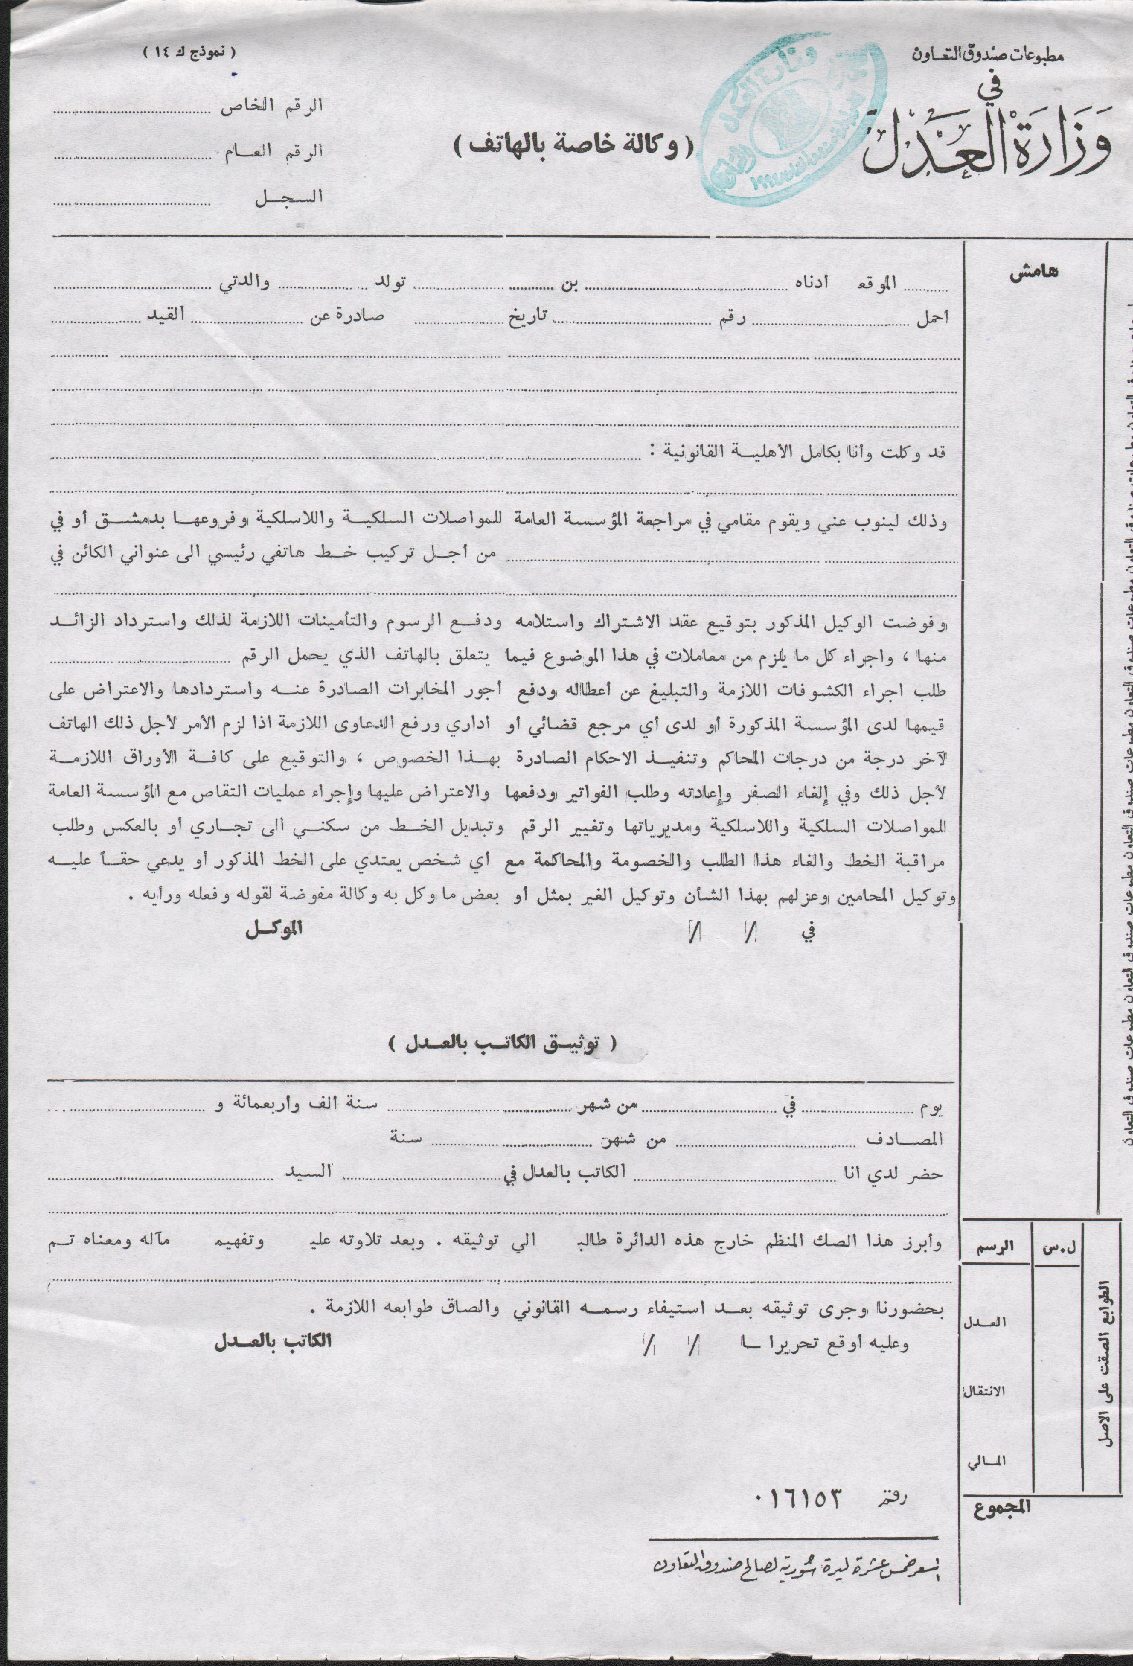 مطبوعات صندوق التعاون
في
وزارة العدل
( نموذج ك ١٤ )
( وكالة خاصة بالهاتف )
الرقم الخاص
الرقم العام
السجل
هامش
الموقع ادناه بن تولد والدتي
احمل رقم تاريخ صادرة عن القيد
قد وكلت وانا بكامل الاهلية القانونية :
وذلك لينوب عني ويقوم مقامي في مراجعة المؤسسة العامة للمواصلات السلكية واللاسلكية وفروعها بدمشق أو في
من أجل تركيب خط هاتفي رئيسي الى عنواني الكائن في
وفوضت الوكيل المذكور بتوقيع عقد الاشتراك واستلامه ودفع الرسوم والتأمينات اللازمة لذلك واسترداد الزائد
منها ، واجراء كل ما يلزم من معاملات في هذا الموضوع فيما يتعلق بالهاتف الذي يحمل الرقم
طلب اجراء الكشوفات اللازمة والتبليغ عن أعطاله ودفع أجور المخابرات الصادرة عنه واستردادها والاعتراض على
قيمها لدى المؤسسة المذكورة أو لدى أي مرجع قضائي أو اداري ورفع الدعاوى اللازمة اذا لزم الأمر لأجل ذلك الهاتف
لآخر درجة من درجات المحاكم وتنفيذ الاحكام الصادرة بهذا الخصوص ، والتوقيع على كافة الأوراق اللازمة
لأجل ذلك وفي إلغاء الصفر وإعادته وطلب الفواتير ودفعها والاعتراض عليها وإجراء عمليات التقاص مع المؤسسة العامة
للمواصلات السلكية واللاسلكية ومديرياتها وتغيير الرقم وتبديل الخط من سكني الى تجاري أو بالعكس وطلب
مراقبة الخط والغاء هذا الطلب والخصومة والمحاكمة مع أي شخص يعتدي على الخط المذكور أو يدعي حقاً عليه
وتوكيل المحامين وعزلهم بهذا الشأن وتوكيل الغير بمثل أو بعض ما وكل به وكالة مفوضة لقوله وفعله ورأيه .
في / / الموكل
( توثيق الكاتب بالعدل )
يوم في من شهر سنة الف واربعمائة و
المصادف من شهر سنة
حضر لدي انا الكاتب بالعدل في السيد
وأبرز هذا الصك المنظم خارج هذه الدائرة طالب الي توثيقه . وبعد تلاوته علي وتفهيم مآله ومعناه تم
بحضورنا وجرى توثيقه بعد استيفاء رسمه القانوني والصاق طوابعه اللازمة .
وعليه أوقع تحريرا / / الكاتب بالعدل
الرسم ل.س
العدل
الانتقال
المالي
المجموع
الطوابع الصقت على الاصل
رقم ٠١٦١٥٣
السعر خمس عشرة ليرة سورية لصالح صندوق التعاون